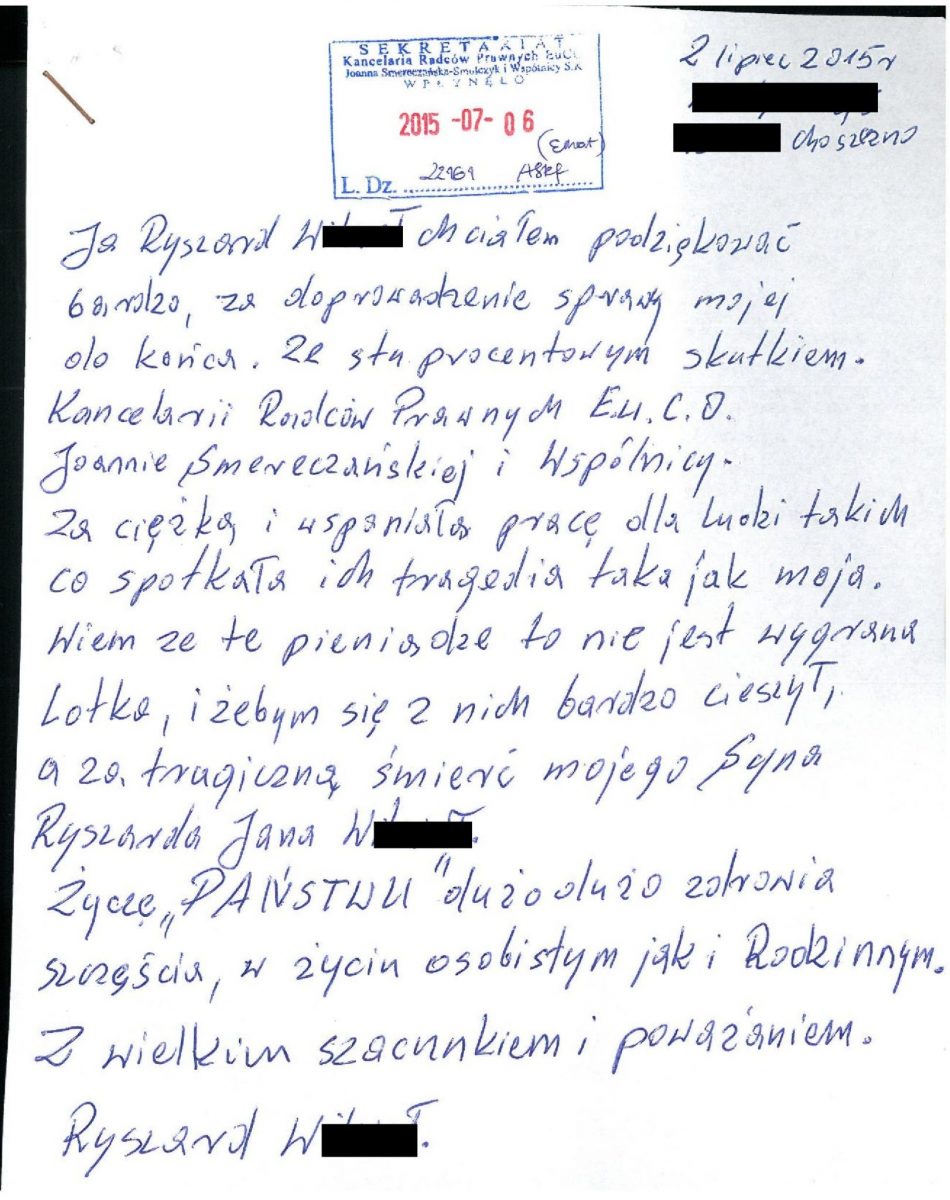 SEKRETARIAT
Kancelaria Radców Prawnych EuCO
Joanna Smereczańska-Smulczyk i Wspólnicy S.K
WPŁYNĘŁO
2015 -07- 06
L. Dz. 22961
2 lipiec 2015r
Choszczno
Ja Ryszard W ł chciałem podziękować
bardzo, za doprowadzenie sprawy mojej
do końca. Ze stu procentowym skutkiem.
Kancelarii Radców Prawnych E.u.C.O.
Joannie Smereczańskiej i Wspólnicy.
Za ciężką i wspaniałą pracę dla ludzi takich
co spotkała ich tragedia taka jak moja.
Wiem ze te pieniądze to nie jest wygrana
Lotka, i żebym się z nich bardzo cieszył,
a za tragiczną śmierć mojego Syna
Ryszarda Jana W ł.
Życzę „PAŃSTWU" dużo dużo zdrowia
szczęścia, w życiu osobistym jak i Rodzinnym.
Z wielkim szacunkiem i poważaniem.
Ryszard W ł.